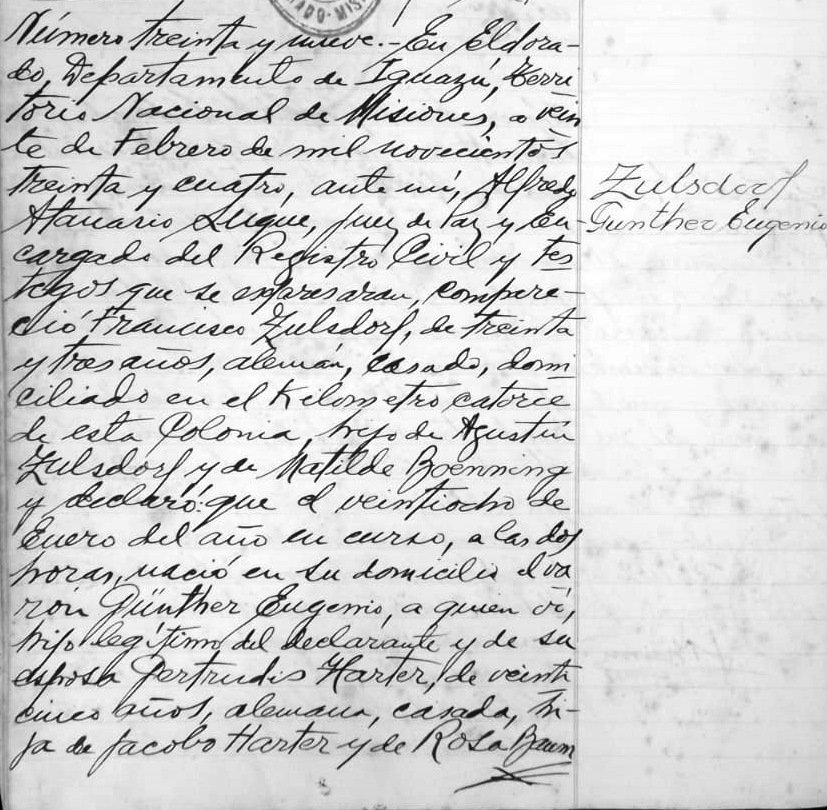 ADO-MIS
Número treinta y nueve.- En Eldora-
do, Departamento de Iguazú, Terri
torio Nacional de Misiones, a vein
te de Febrero de mil novecientos
treinta y cuatro, ante mí, Alfredo
Atanario Luque, Juez de Paz y En-
cargado del Registro Civil y tes
tigos que se expresaran, compare-
ció Francisco Zulsdorf, de treinta
y tres años, alemán, casado, domi
ciliado en el Kilometro catorce
de esta Colonia, hijo de Agustín
Zulsdorf y de Matilde Boenning
y declaró: que el veintiocho de
Enero del año en curso, a las dos
horas, nació en su domicilio el va
rón Günther Eugenio, a quien ví,
hijo legítimo del declarante y de su
esposa Gertrudis Harter, de veinti
cinco años, alemana, casada, hi-
ja de Jacobo Harter y de Rosa Baum
Zulsdorf
Gunther Eugenio